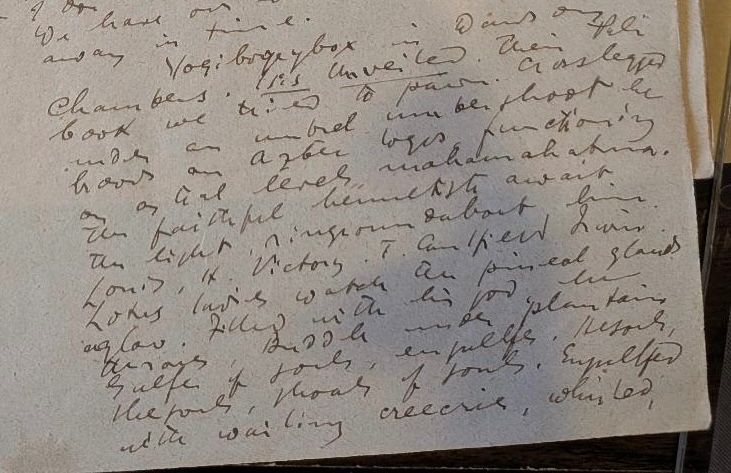 We have our
away in time.
Yogibogeybox in Dawson
chambers. Isis Unveiled. Their Pali
book we tried to pawn. Crosslegged
under an umbrel umbershoot he
broods an Aztec logos, functioning
on astral levels, mahamahatma.
The faithful hermetists await
the light, ringroundabout him.
Louis, H. Victory. T. Caulfield Irwin.
Lotus ladies watch the pineal glands
aglow. Filled with his god he
thrones, Buddh under plantain
Gulfer of souls, engulfer. Hesouls,
shesouls, shoals of souls. Engulfed
with wailing creecries, whirled,